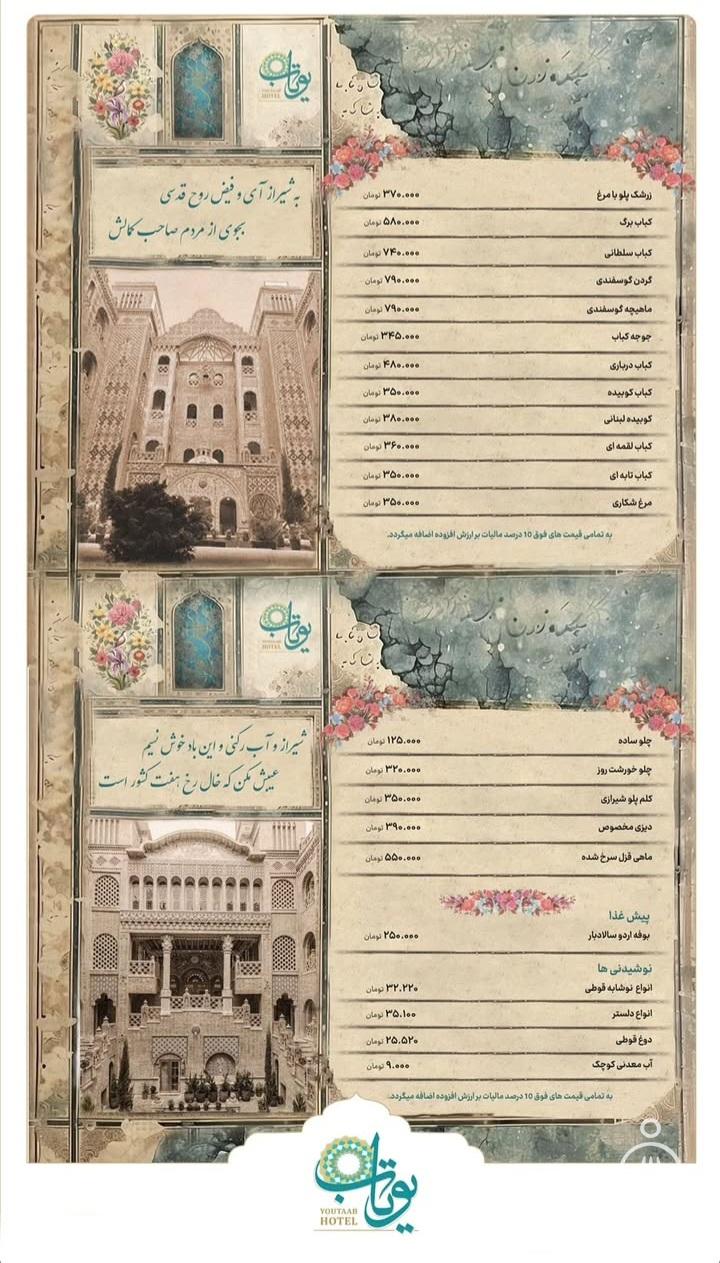 یوتاب
HOTEL
به شیراز آی و فیض روح قدسی
بجوی از مردم صاحب کمالش
زرشک پلو با مرغ ۳۷۰.۰۰۰ تومان
کباب برگ ۵۸۰.۰۰۰ تومان
کباب سلطانی ۷۴۰.۰۰۰ تومان
گردن گوسفندی ۷۹۰.۰۰۰ تومان
ماهیچه گوسفندی ۷۹۰.۰۰۰ تومان
جوجه کباب ۳۴۵.۰۰۰ تومان
کباب درباری ۴۸۰.۰۰۰ تومان
کباب کوبیده ۳۵۰.۰۰۰ تومان
کوبیده لبنانی ۳۸۰.۰۰۰ تومان
کباب لقمه ای ۳۶۰.۰۰۰ تومان
کباب تابه ای ۳۵۰.۰۰۰ تومان
مرغ شکاری ۳۵۰.۰۰۰ تومان
به تمامی قیمت های فوق 10 درصد مالیات بر ارزش افزوده اضافه میگردد.
یوتاب
HOTEL
شیراز و آب رکنی و این باد خوش نسیم
عیبش مکن که خال رخ هفت کشور است
چلو ساده ۱۲۵.۰۰۰ تومان
چلو خورشت روز ۳۲۰.۰۰۰ تومان
کلم پلو شیرازی ۳۵۰.۰۰۰ تومان
دیزی مخصوص ۳۹۰.۰۰۰ تومان
ماهی قزل سرخ شده ۵۵۰.۰۰۰ تومان
پیش غذا
بوفه اردو سالادبار ۲۵۰.۰۰۰ تومان
نوشیدنی ها
انواع نوشابه قوطی ۳۲.۲۲۰ تومان
انواع دلستر ۳۵.۱۰۰ تومان
دوغ قوطی ۲۵.۵۲۰ تومان
آب معدنی کوچک ۹.۰۰۰ تومان
به تمامی قیمت های فوق 10 درصد مالیات بر ارزش افزوده اضافه میگردد.
یوتاب
YOUTAAB
HOTEL